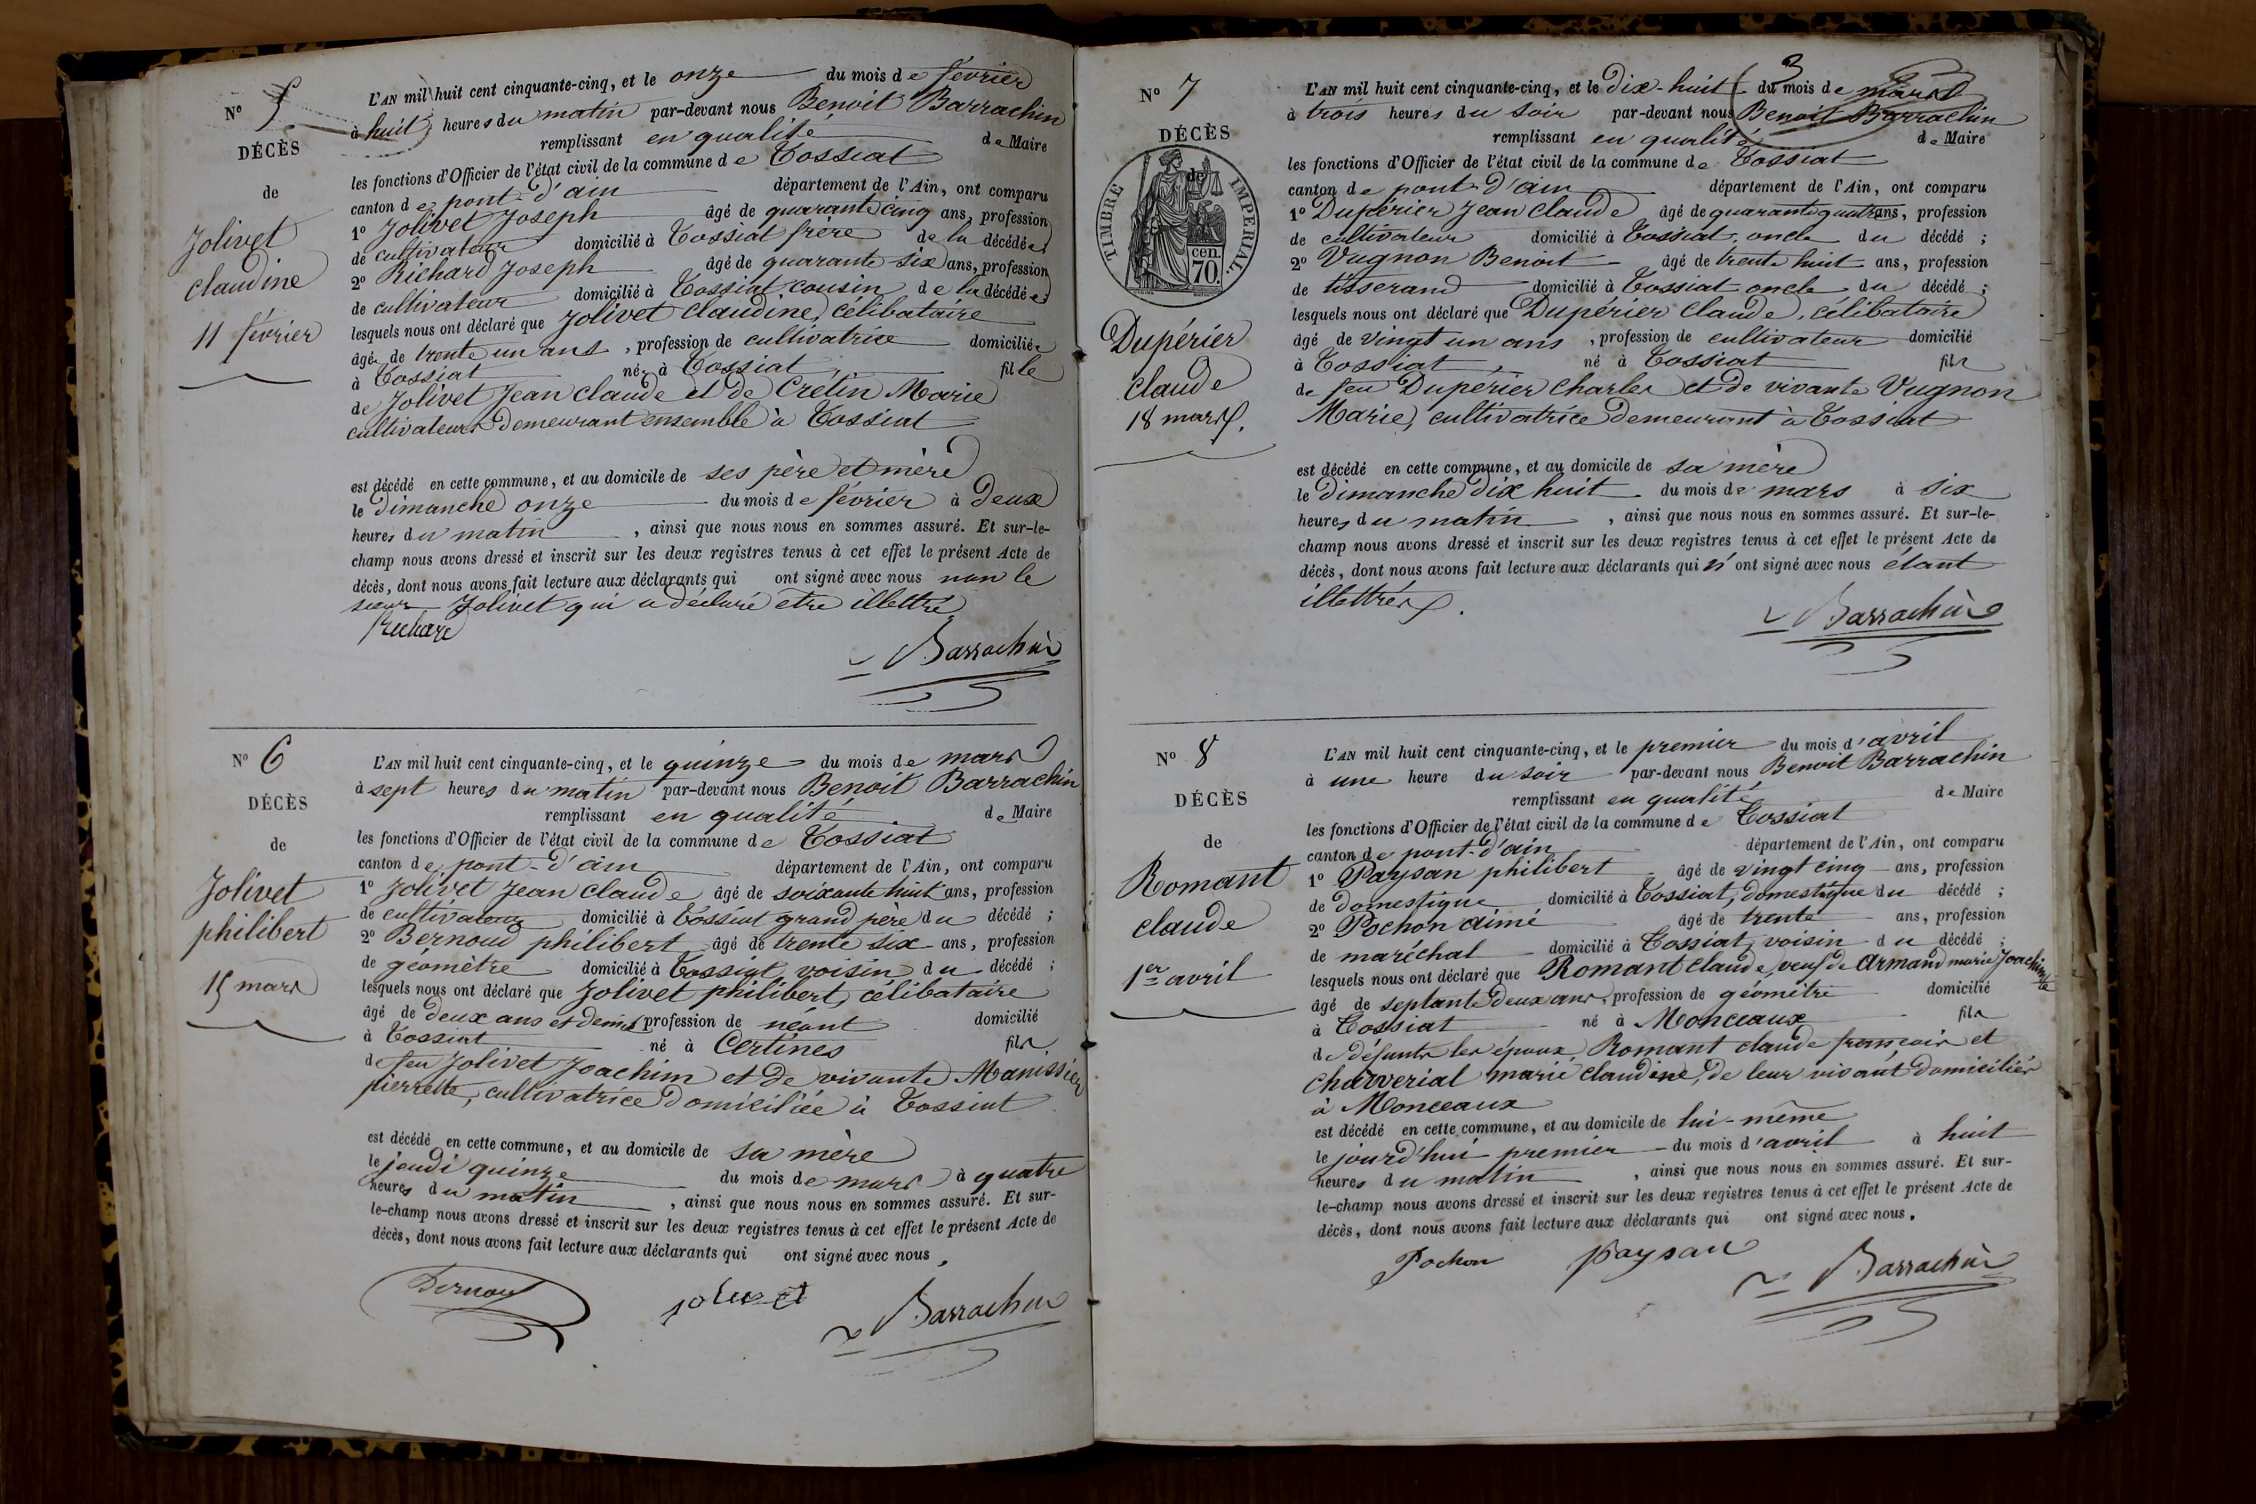 N° 5
DÉCÈS
de
Jolivet
claudine
11 février
L'AN mil huit cent cinquante-cinq, et le onze du mois de février
à huit heures du matin par-devant nous Benoit Barrachin
remplissant en qualité de Maire
les fonctions d'Officier de l'état civil de la commune de Tossiat
canton de pont-d'ain département de l'Ain, ont comparu
1° Jolivet Joseph âgé de quarante cinq ans, profession
de cultivateur domicilié à Tossiat frère de la décédée
2° Richard Joseph âgé de quarante six ans, profession
de cultivateur domicilié à Tossiat cousin de la décédée
lesquels nous ont déclaré que Jolivet claudine, célibataire
âgée de trente un ans, profession de cultivatrice domiciliée
à Tossiat née à Tossiat fille
de Jolivet Jean claude et de Cretin Marie
cultivateurs demeurant ensemble à Tossiat
est décédé en cette commune, et au domicile de ses père et mère
le Dimanche onze du mois de février à Deux
heures du matin, ainsi que nous nous en sommes assuré. Et sur-le-
champ nous avons dressé et inscrit sur les deux registres tenus à cet effet le présent Acte de
décès, dont nous avons fait lecture aux déclarants qui ont signé avec nous non le
sieur Jolivet qui a déclaré etre illettré
Richard
Barrachin
N° 6
DÉCÈS
de
Jolivet
philibert
15 mars
L'AN mil huit cent cinquante-cinq, et le quinze du mois de mars
à sept heures du matin par-devant nous Benoit Barrachin
remplissant en qualité de Maire
les fonctions d'Officier de l'état civil de la commune de Tossiat
canton de pont-d'ain département de l'Ain, ont comparu
1° Jolivet Jean claude âgé de soixante huit ans, profession
de cultivateur domicilié à Tossiat grand père du décédé ;
2° Bernoud philibert âgé de trente six ans, profession
de géomètre domicilié à Tossiat voisin du décédé ;
lesquels nous ont déclaré que Jolivet philibert, célibataire
âgé de deux ans et demi, profession de néant domicilié
à Tossiat né à Certines fils
de feu Jolivet Joachim et de vivante Manissier
pierrette, cultivatrice domiciliée à Tossiat
est décédé en cette commune, et au domicile de sa mère
le jeudi quinze du mois de mars à quatre
heures du matin, ainsi que nous nous en sommes assuré. Et sur-
le-champ nous avons dressé et inscrit sur les deux registres tenus à cet effet le présent Acte de
décès, dont nous avons fait lecture aux déclarants qui ont signé avec nous.
Bernoud Jolivet Barrachin
3
N° 7
DÉCÈS
de
TIMBRE IMPERIAL.
cen.
70.
Dupérier
claude
18 mars.
L'AN mil huit cent cinquante-cinq, et le Dix-huit du mois de mars
à trois heures du soir par-devant nous Benoit Barrachin
remplissant en qualité de Maire
les fonctions d'Officier de l'état civil de la commune de Tossiat
canton de pont-d'ain département de l'Ain, ont comparu
1° Dupérier Jean claude âgé de quarante quatre ans, profession
de cultivateur domicilié à Tossiat, oncle du décédé ;
2° Vugnon Benoit âgé de trente huit ans, profession
de tisserand domicilié à Tossiat oncle du décédé ;
lesquels nous ont déclaré que Dupérier claude, célibataire
âgé de vingt un ans, profession de cultivateur domicilié
à Tossiat, né à Tossiat fils
de feu Dupérier Charles et de vivante Vugnon
Marie, cultivatrice demeurant à Tossiat
est décédé en cette commune, et au domicile de sa mère
le Dimanche Dix huit du mois de mars à six
heures du matin, ainsi que nous nous en sommes assuré. Et sur-le-
champ nous avons dressé et inscrit sur les deux registres tenus à cet effet le présent Acte de
décès, dont nous avons fait lecture aux déclarants qui n'ont signé avec nous étant
illettrés.
Barrachin
N° 8
DÉCÈS
de
Romant
claude
1er avril
L'AN mil huit cent cinquante-cinq, et le premier du mois d'avril
à une heure du soir par-devant nous Benoit Barrachin
remplissant en qualité de Maire
les fonctions d'Officier de l'état civil de la commune de Tossiat
canton de pont-d'ain département de l'Ain, ont comparu
1° Paysan philibert âgé de vingt cinq ans, profession
de domestique domicilié à Tossiat, domestique du décédé ;
2° Pochon aimé âgé de trente ans, profession
de maréchal domicilié à Tossiat, voisin du décédé ;
lesquels nous ont déclaré que Romant claude, veuf de Armand marie Joachime
âgé de septante deux ans, profession de géomètre domicilié
à Tossiat né à Monceaux fils
de défunts les époux Romant claude françois et
charverial marie claudine, de leur vivant domiciliés
à Monceaux
est décédé en cette commune, et au domicile de lui-même
le jourd'hui premier du mois d'avril à huit
heures du matin, ainsi que nous nous en sommes assuré. Et sur-
le-champ nous avons dressé et inscrit sur les deux registres tenus à cet effet le présent Acte de
décès, dont nous avons fait lecture aux déclarants qui ont signé avec nous.
Pochon paysan Barrachin